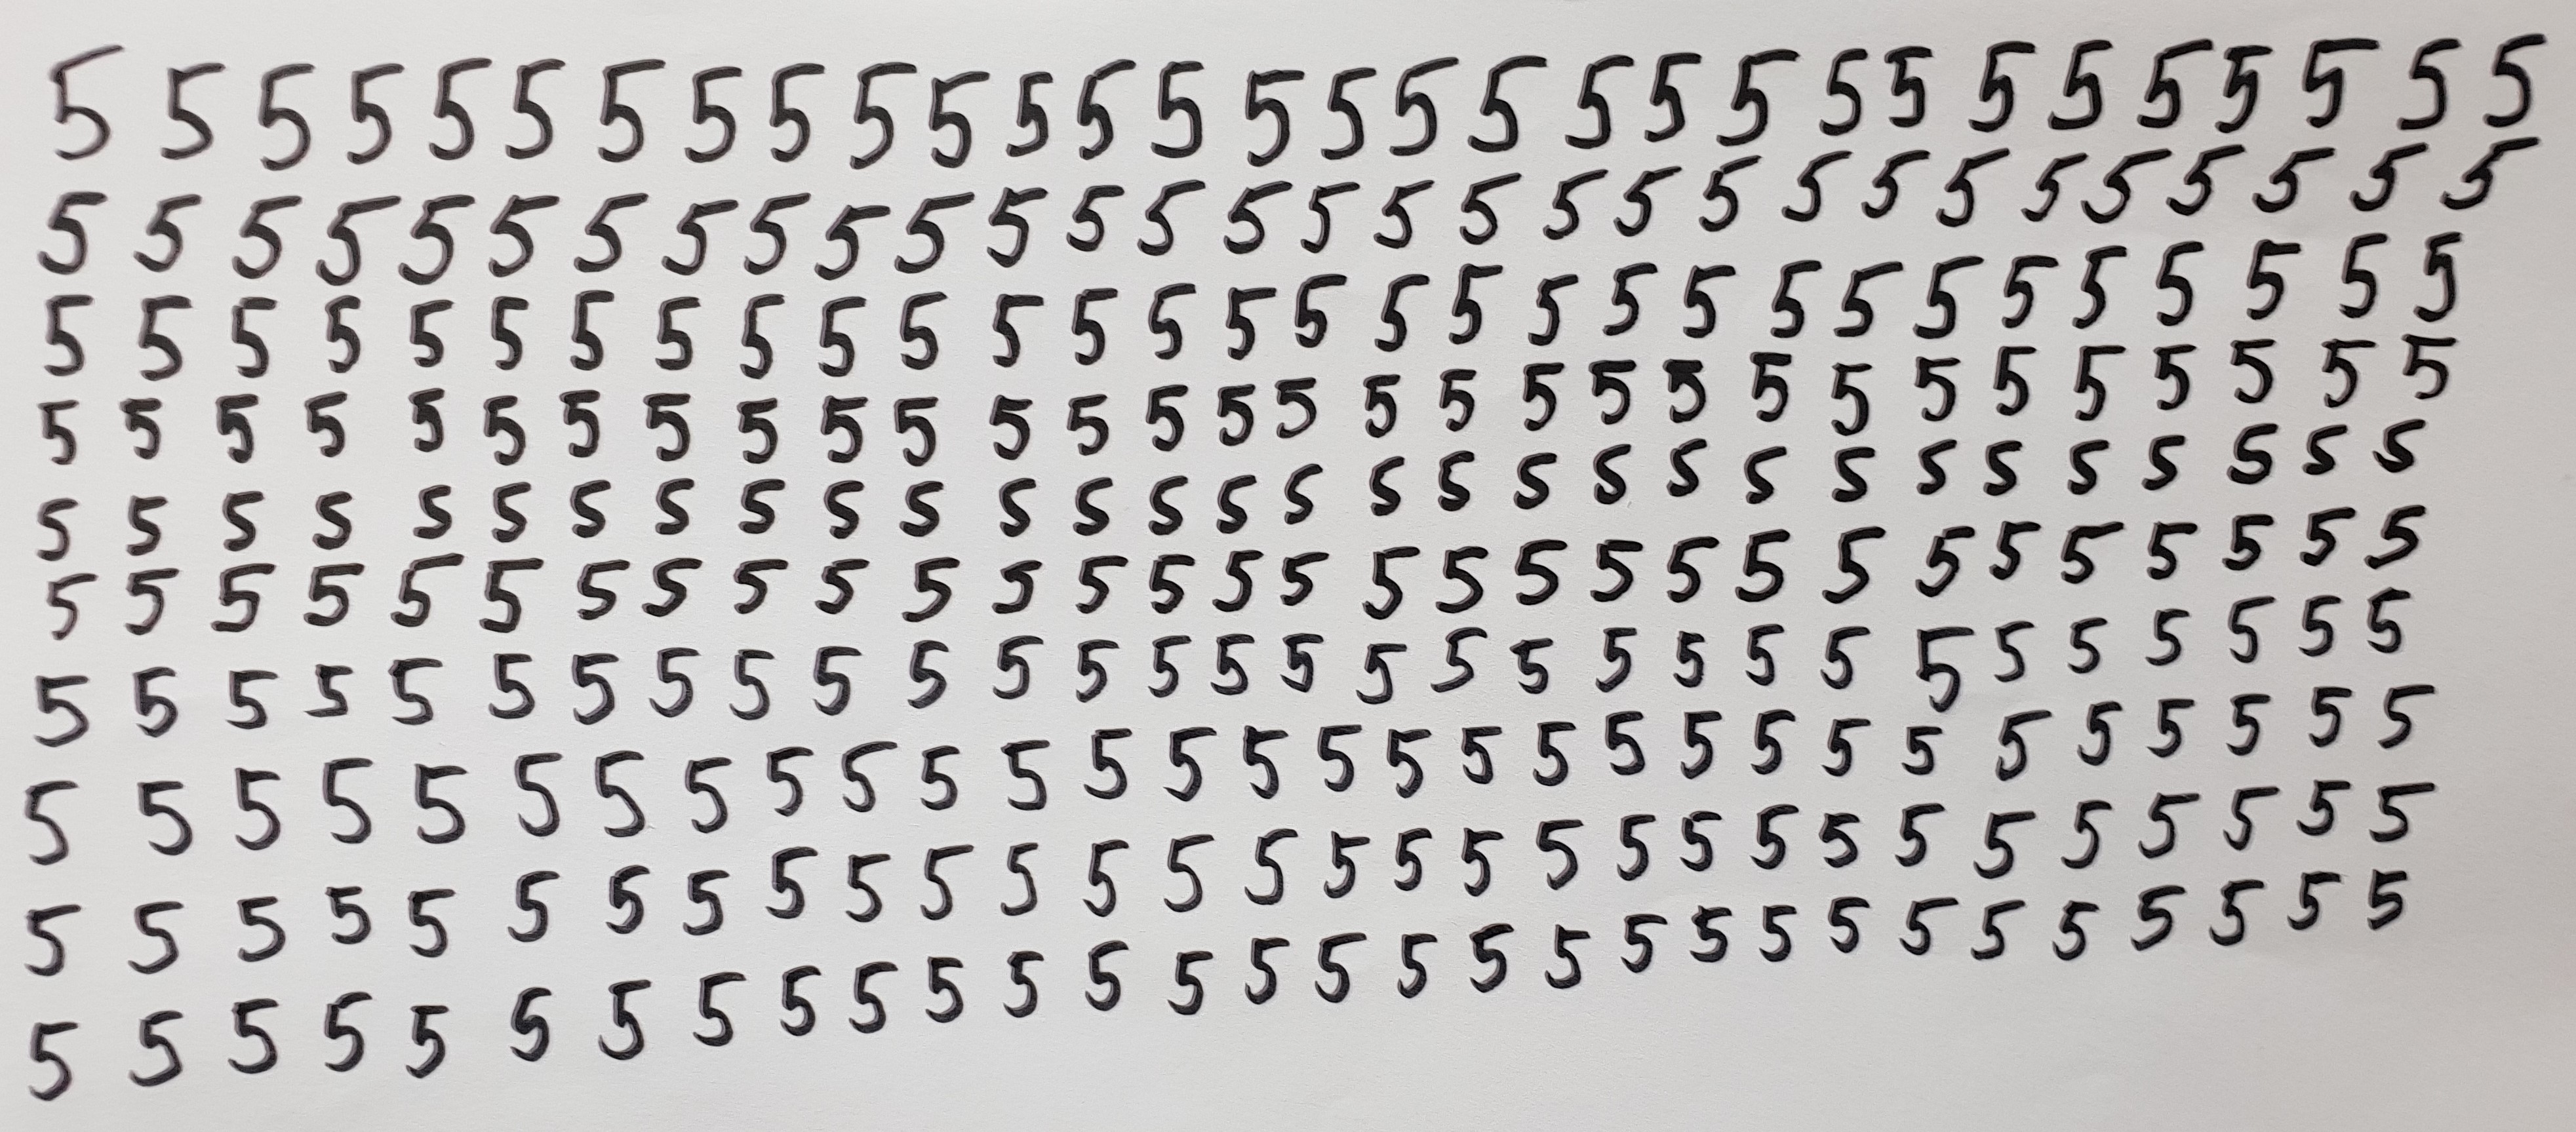 5 5 5 5 5 5 5 5 5 5 5 5 5 5 5 5 5 5 5 5 5 5 5 5 5 5 5 5 5 5
5 5 5 5 5 5 5 5 5 5 5 5 5 5 5 5 5 5 5 5 5 5 5 5 5 5 5 5 5 5
5 5 5 5 5 5 5 5 5 5 5 5 5 5 5 5 5 5 5 5 5 5 5 5 5 5 5 5 5 5
5 5 5 5 5 5 5 5 5 5 5 5 5 5 5 5 5 5 5 5 5 5 5 5 5 5 5 5 5 5
5 5 5 5 5 5 5 5 5 5 5 5 5 5 5 5 5 5 5 5 5 5 5 5 5 5 5 5 5 5
5 5 5 5 5 5 5 5 5 5 5 5 5 5 5 5 5 5 5 5 5 5 5 5 5 5 5 5 5 5
5 5 5 5 5 5 5 5 5 5 5 5 5 5 5 5 5 5 5 5 5 5 5 5 5 5 5 5 5 5
5 5 5 5 5 5 5 5 5 5 5 5 5 5 5 5 5 5 5 5 5 5 5 5 5 5 5 5 5 5
5 5 5 5 5 5 5 5 5 5 5 5 5 5 5 5 5 5 5 5 5 5 5 5 5 5 5 5 5 5
5 5 5 5 5 5 5 5 5 5 5 5 5 5 5 5 5 5 5 5 5 5 5 5 5 5 5 5 5 5